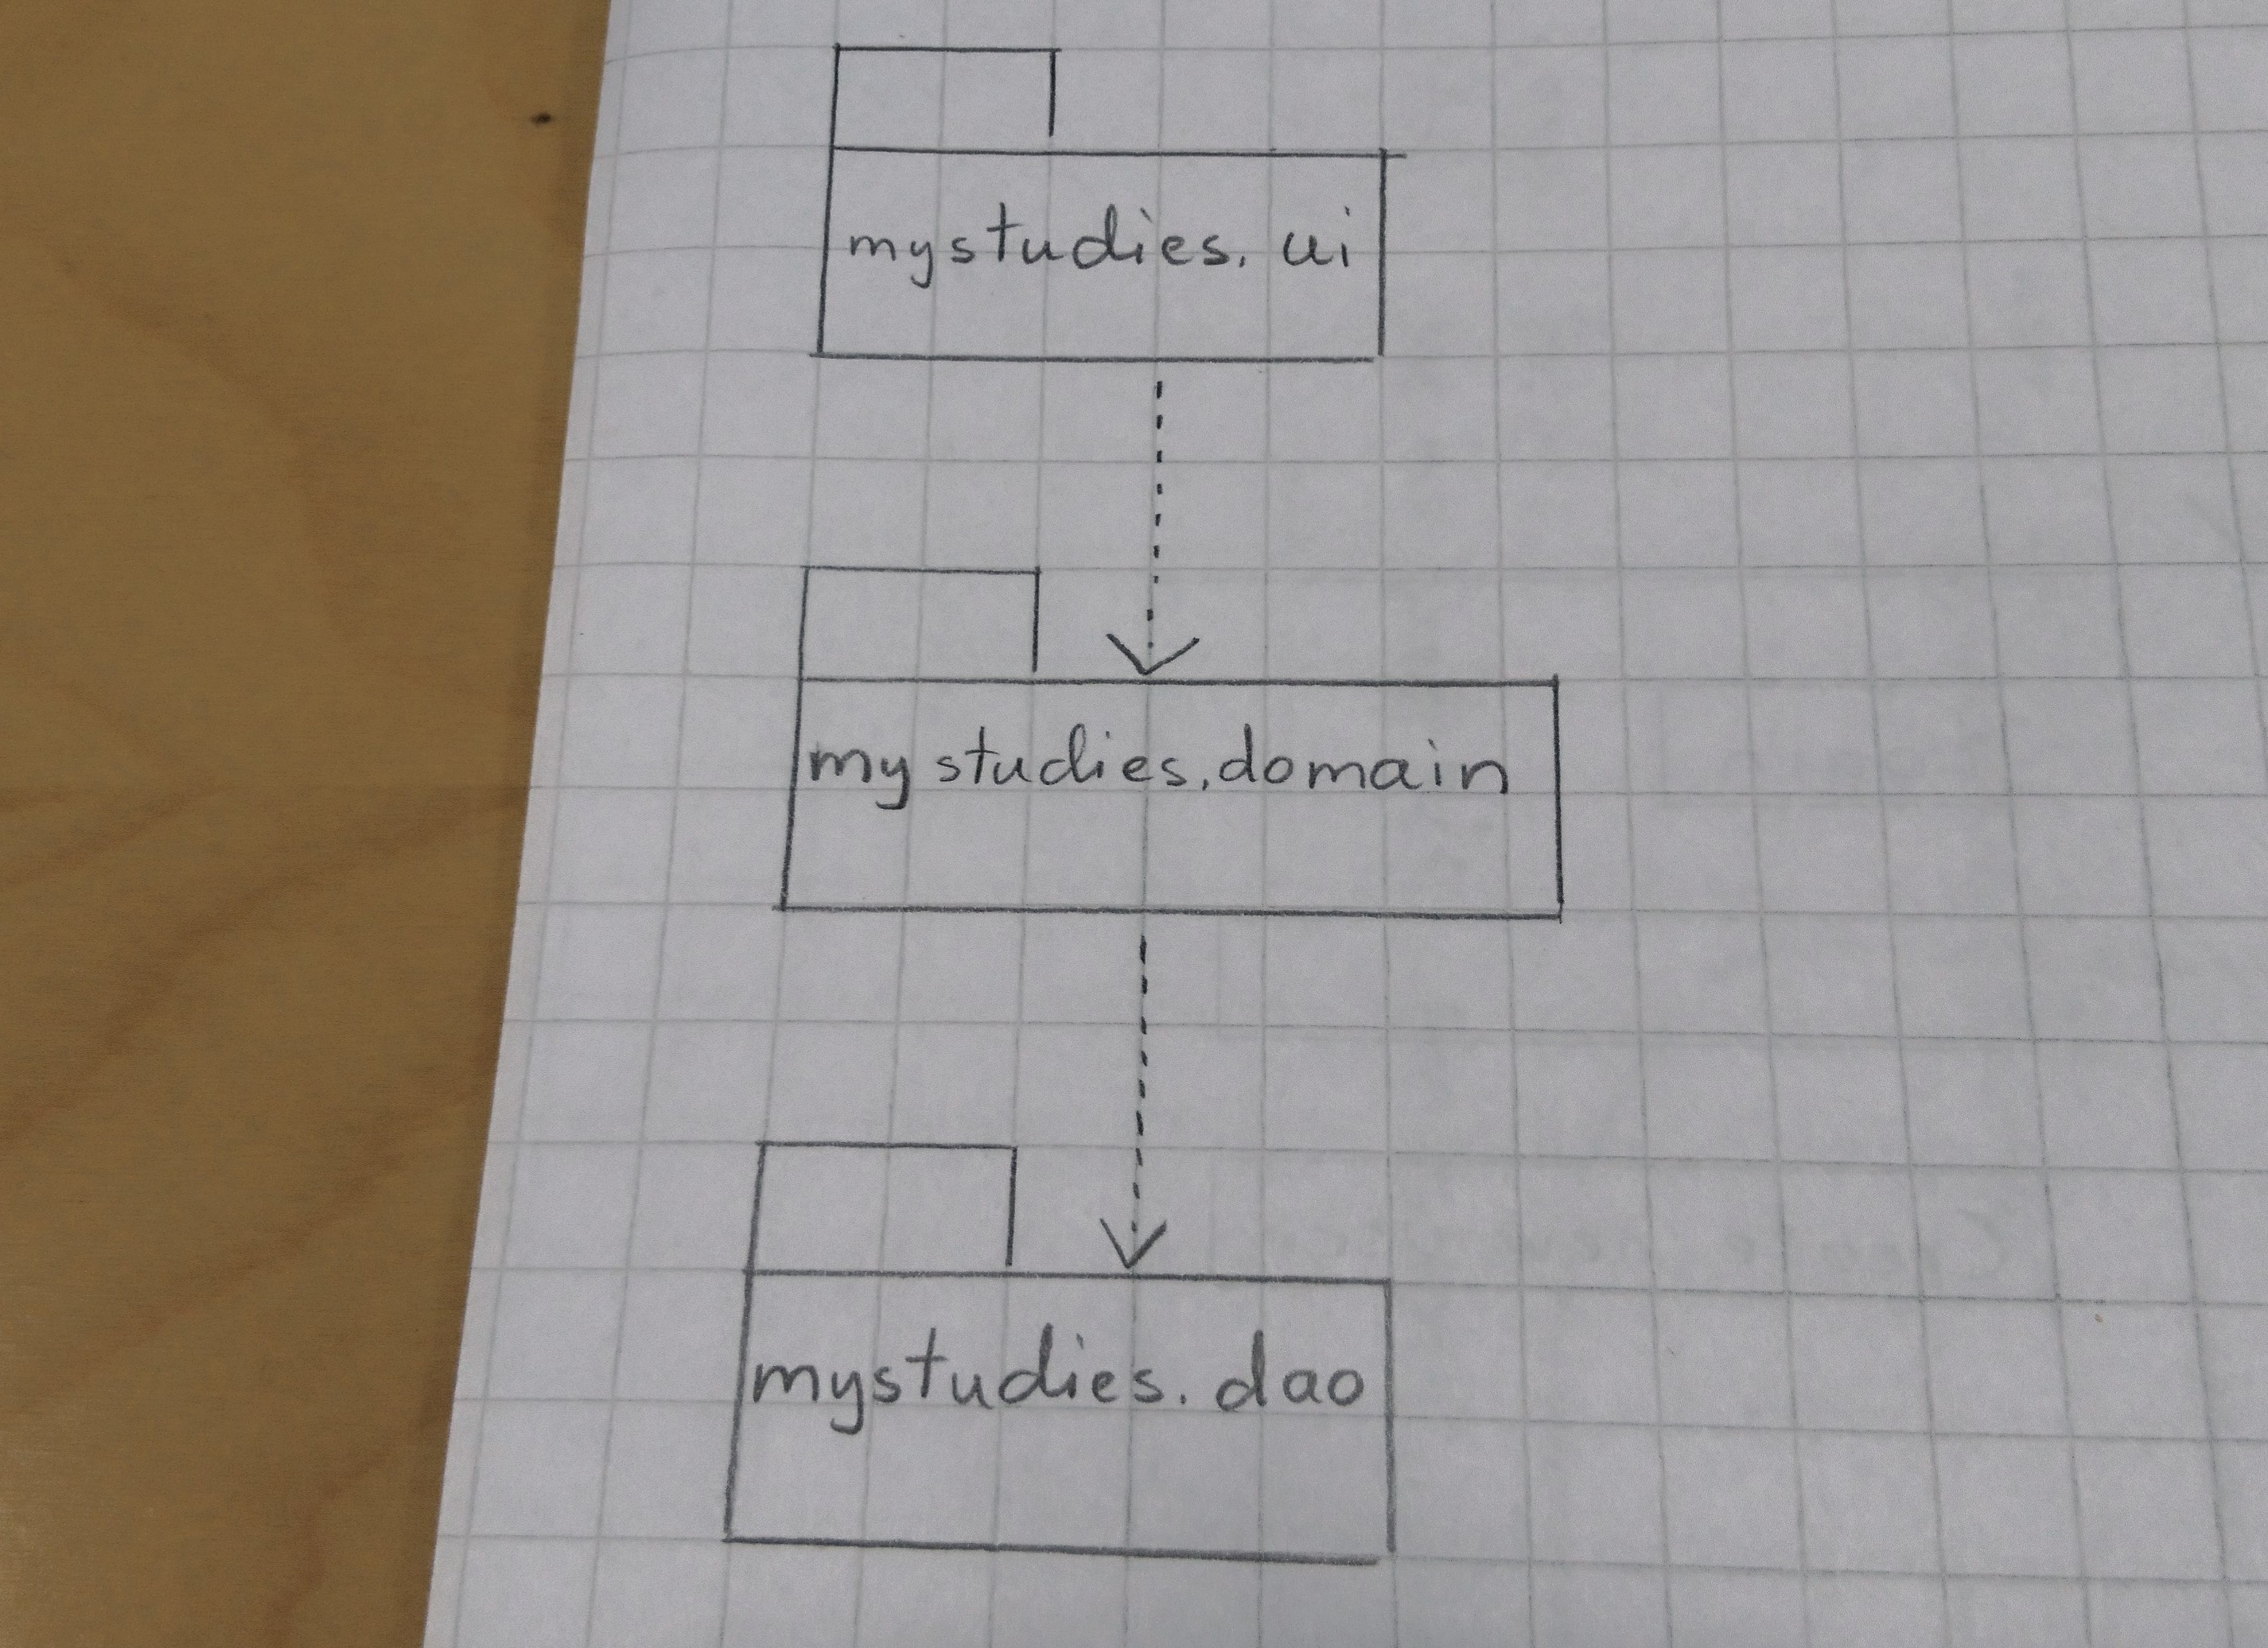 mystudies.ui
mystudies.domain
mystudies.dao